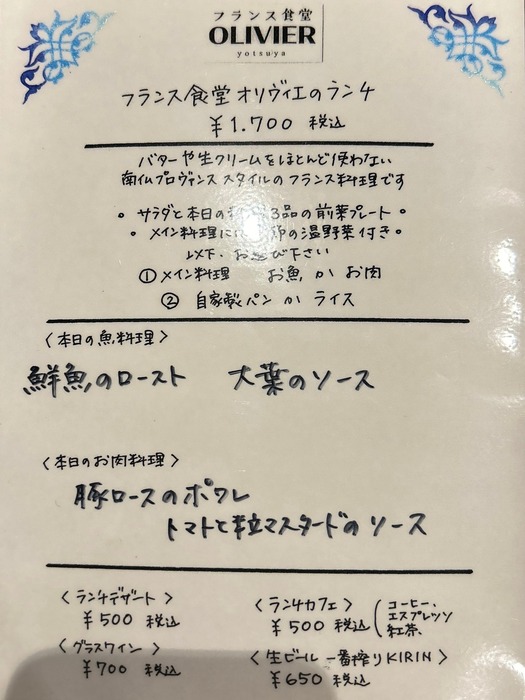 フランス食堂
OLIVIER
yotsuya
フランス食堂オリヴィエのランチ
¥1.700 税込
バターや生クリームをほとんど使わない
南仏プロヴァンススタイルのフランス料理です
。サラダと本日の 3品の前菜プレート。
。メイン料理に 節の温野菜付き。
以下、お選び下さい
① メイン料理 お魚 か お肉
② 自家製パン か ライス
〈本日の魚料理〉
鮮魚のロースト 大葉のソース
〈本日のお肉料理〉
豚ロースのポワレ
トマトと粒マスタードのソース
〈ランチデザート〉
¥500 税込
〈ランチカフェ〉
¥500 税込
(コーヒー、
エスプレッソ
紅茶、
〈グラスワイン〉
¥700 税込
〈生ビール 一番搾りKIRIN〉
¥650 税込